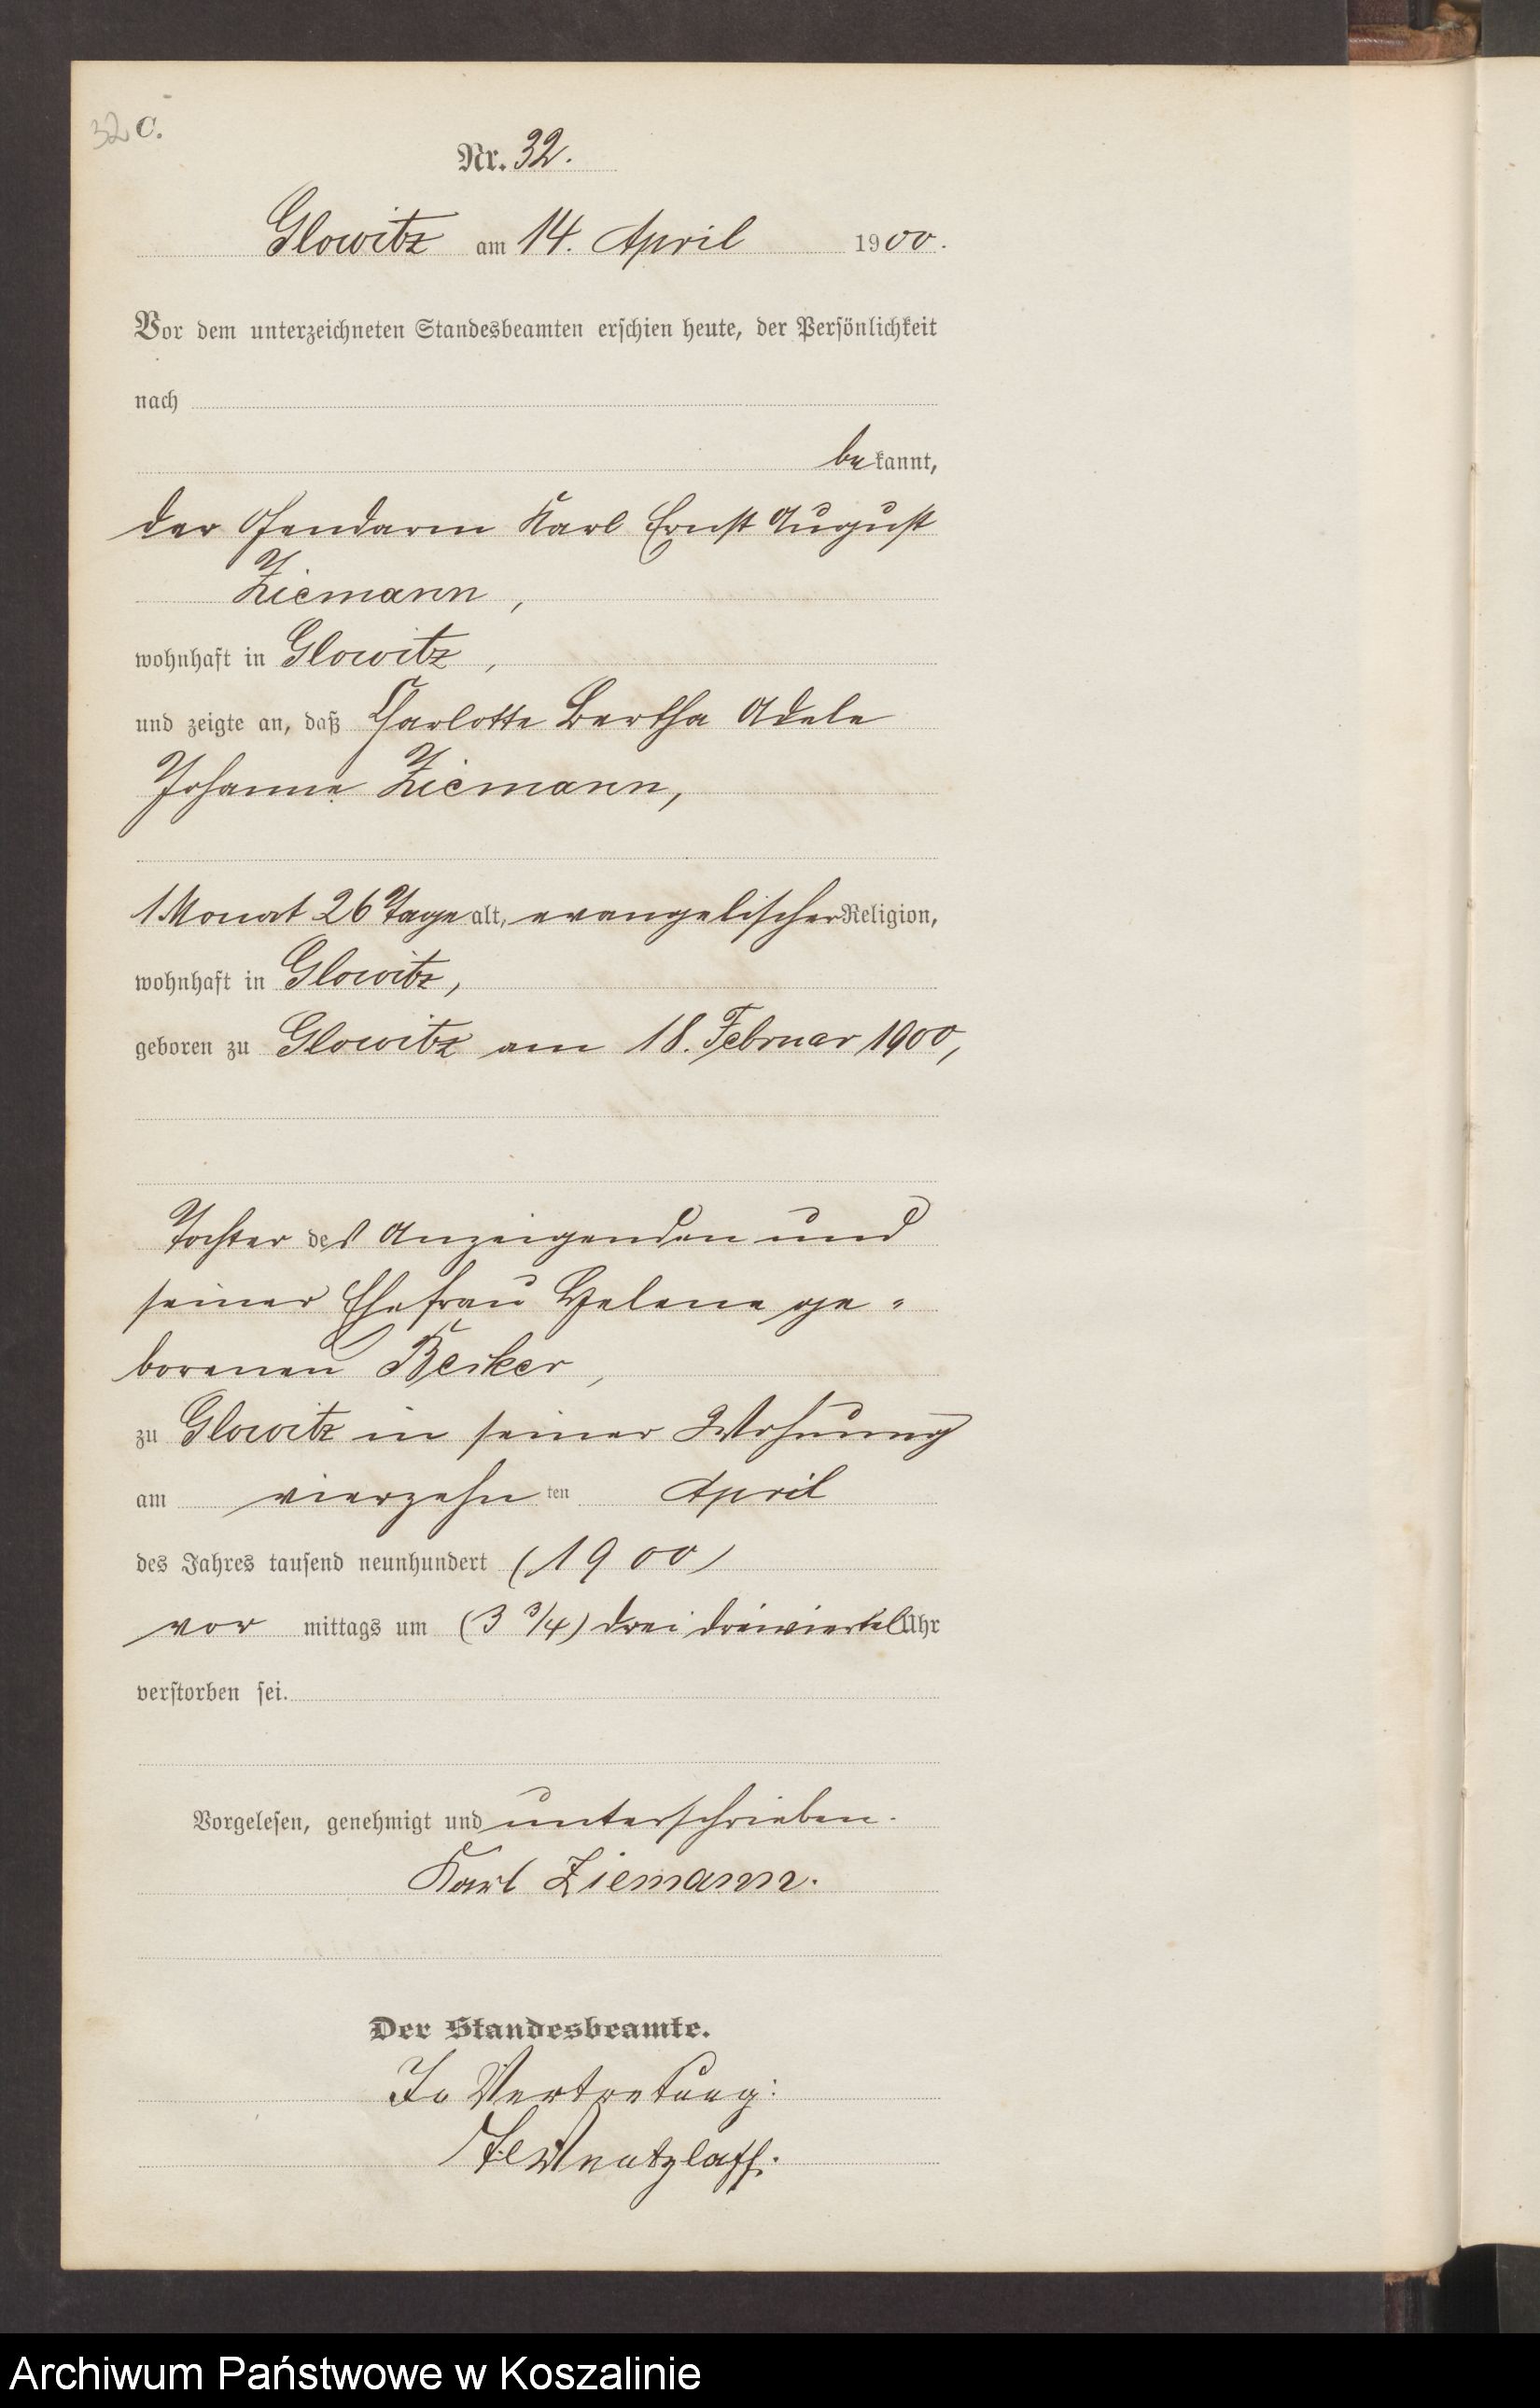 32 C.
Nr. 32.
Glowitz am 14. April 1900.
Vor dem unterzeichneten Standesbeamten erschien heute, der Persönlichkeit
nach
bekannt,
der Gendarm Karl Ernst August
Ziemann,
wohnhaft in Glowitz,
und zeigte an, daß Charlotte Bertha Adele
Johanne Ziemann,
1 Monat 26 Tage alt, evangelischer Religion,
wohnhaft in Glowitz,
geboren zu Glowitz am 18. Februar 1900,
Tochter des Anzeigenden und
seiner Ehefrau Helene ge-
borenen Becker,
zu Glowitz in seiner Wohnung
am vierzehnten April
des Jahres tausend neunhundert (1900)
vormittags um (3 3/4) drei dreiviertel Uhr
verstorben sei.
Vorgelesen, genehmigt und unterschrieben.
Karl Ziemann.
Der Standesbeamte.
In Vertretung:
Wentzlaff.
Archiwum Państwowe w Koszalinie